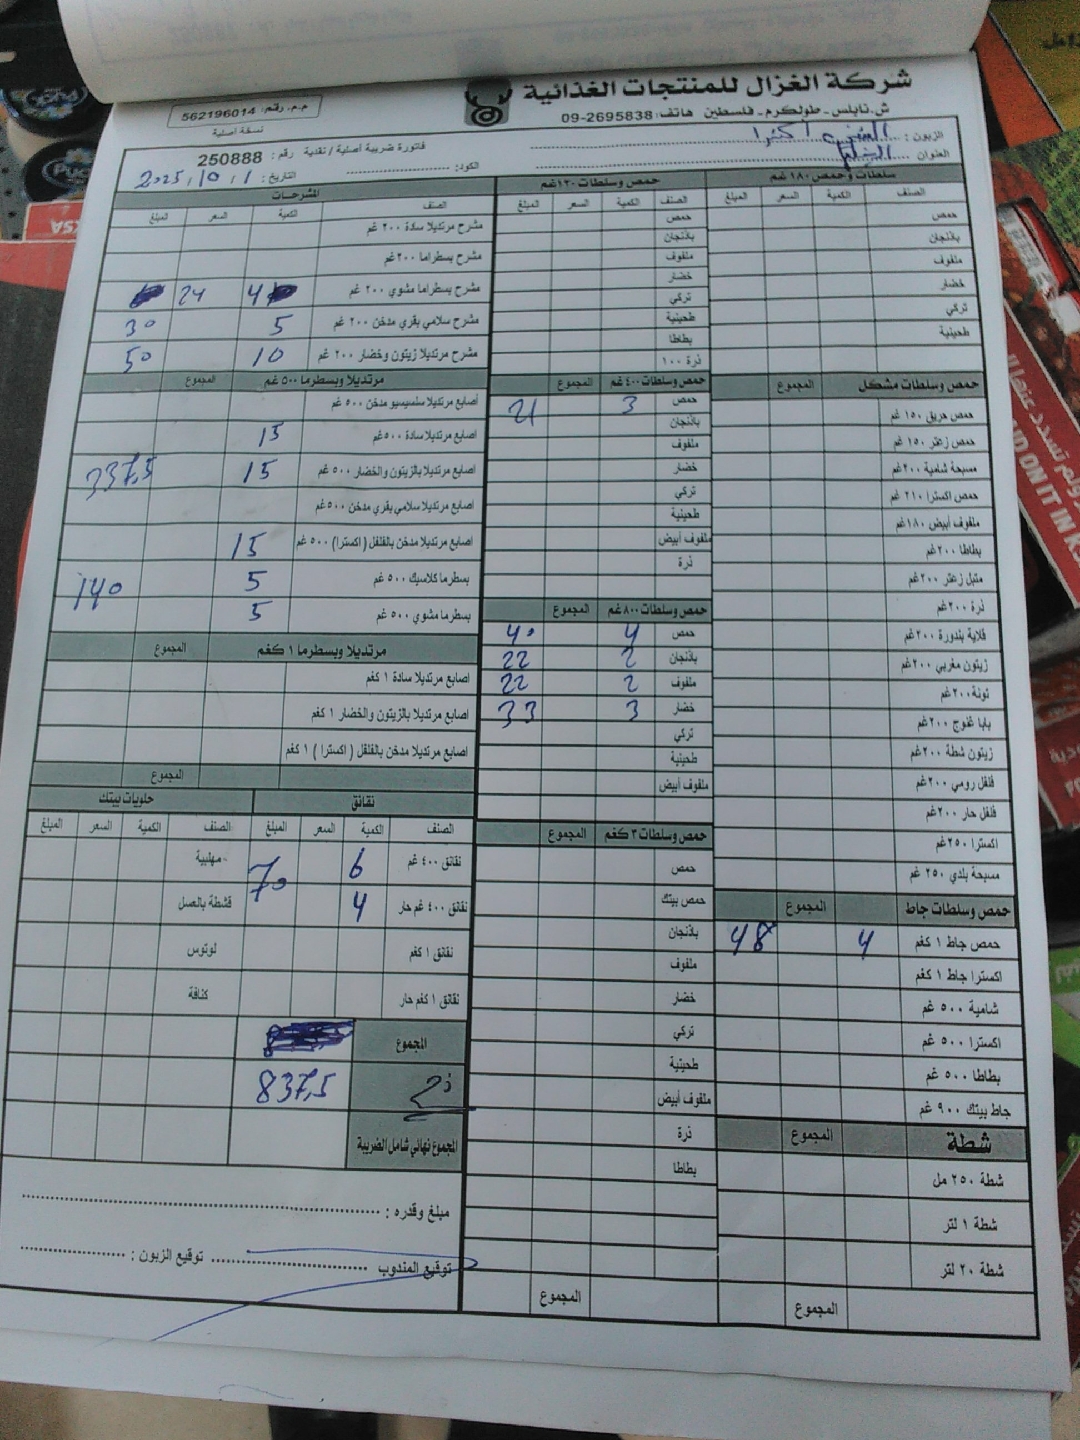 شركة الغزال للمنتجات الغذائية
ش.نابلس - طولكرم - فلسطين هاتف: 09-2695838
م.م. رقم: 562196014
نسخة أصلية
فاتورة ضريبة أصلية / نقدية رقم: 250888
الزبون:
العنوان
الكود:
التاريخ: 2025/10/1
سلطات وحمص ١٨٠ غم
الصنف الكمية السعر المبلغ
حمص
باذنجان
ملفوف
خضار
تركي
طحينية
حمص وسلطات مشكل المجموع
حمص حريق ١٥٠ غم
حمص زعتر ١٥٠ غم
مسبحة شامية ٢٠٠غم
حمص اكسترا ٢١٠ غم
ملفوف أبيض ١٨٠غم
بطاطا ٢٠٠غم
متبل زعتر ٢٠٠غم
ذرة ٢٠٠غم
قلاية بندورة ٢٠٠غم
زيتون مغربي ٢٠٠غم
تونة ٢٠٠غم
بابا غنوج ٢٠٠غم
زيتون شطة ٢٠٠غم
فلفل رومي ٢٠٠غم
فلفل حار ٢٠٠غم
اكسترا ٢٥٠غم
مسبحة بلدي ٢٥٠ غم
حمص وسلطات جاط المجموع
حمص جاط ١ كغم 4 48
اكسترا جاط ١ كغم
شامية ٥٠٠ غم
اكسترا ٥٠٠ غم
بطاطا ٥٠٠ غم
جاط بيتك ٩٠٠ غم
شطة المجموع
شطة ٢٥٠ مل
شطة ١ لتر
شطة ٢٠ لتر
المجموع
حمص وسلطات ١٢٠غم
الصنف الكمية السعر المبلغ
حمص
باذنجان
ملفوف
خضار
تركي
طحينية
بطاطا
ذرة ١٠٠
حمص وسلطات ٤٠٠ غم المجموع
حمص 3 21
باذنجان
ملفوف
خضار
تركي
طحينية
ملفوف أبيض
ذرة
حمص وسلطات ٨٠٠ غم المجموع
حمص 4 40
باذنجان 2 22
ملفوف 2 22
خضار 3 33
تركي
طحينية
ملفوف أبيض
حمص وسلطات ٣ كغم المجموع
حمص
حمص بيتك
باذنجان
ملفوف
خضار
تركي
طحينية
ملفوف أبيض
ذرة
بطاطا
المجموع
المشرحات
الصنف الكمية السعر المبلغ
مشرح مرتديلا سادة ٢٠٠ غم
مشرح بسطراما ٢٠٠غم
مشرح بسطراما مشوي ٢٠٠ غم 4 24
مشرح سلامي بقري مدخن ٢٠٠ غم 5 30
مشرح مرتديلا زيتون وخضار ٢٠٠ غم 10 50
مرتديلا وبسطرما ٥٠٠ غم المجموع
أصابع مرتديلا سلسيسيو مدخن ٥٠٠ غم
اصابع مرتديلا سادة ٥٠٠غم 15
اصابع مرتديلا بالزيتون والخضار ٥٠٠ غم 15 337,5
اصابع مرتديلا سلامي بقري مدخن ٥٠٠غم
اصابع مرتديلا مدخن بالفلفل (اكسترا) ٥٠٠ غم 15
بسطرما كلاسيك ٥٠٠ غم 5 140
بسطرما مشوي ٥٠٠ غم 5
مرتديلا وبسطرما ١ كغم المجموع
اصابع مرتديلا سادة ١ كغم
اصابع مرتديلا بالزيتون والخضار ١ كغم
اصابع مرتديلا مدخن بالفلفل (اكسترا) ١ كغم
المجموع
نقانق
الصنف الكمية السعر المبلغ
نقانق ٤٠٠ غم 6 70
نقانق ٤٠٠ غم حار 4
نقانق ١ كغم
نقانق ١ كغم حار
حلويات بيتك
الصنف الكمية السعر المبلغ
مهلبية
قشطة بالعسل
لوتوس
كنافة
المجموع
837,5
المجموع نهائي شامل الضريبة
مبلغ وقدره:
توقيع المندوب
توقيع الزبون: